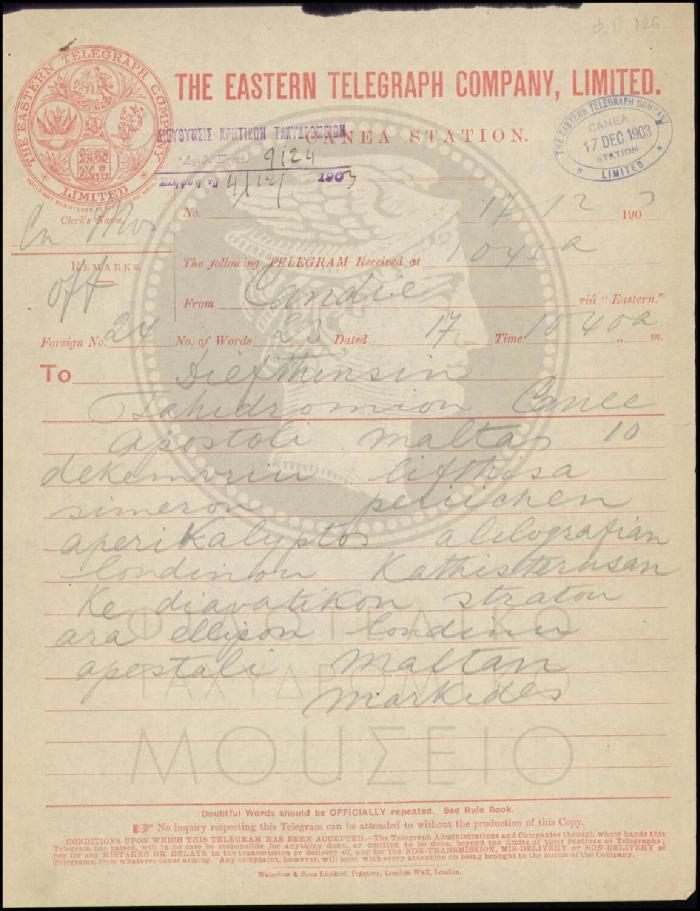 Φ.11.126
THE EASTERN TELEGRAPH COMPANY, LIMITED.
THE EASTERN TELEGRAPH COMPANY
LIMITED
CANEA STATION.
ΔΙΕΥΘΥΝΣΙΣ ΚΡΗΤΙΚΩΝ ΤΑΧΥΔΡΟΜΕΙΩΝ
9124
4/12/ 1903
THE EASTERN TELEGRAPH COMPANY
CANEA
17 DEC. 1903
STATION
LIMITED
Clerk's Name.
No. 17 12 190 3
REMARKS.
off
The following TELEGRAM Received at 10 40 a
From Candie viâ "Eastern."
Foreign No. 24 No. of Words 23 Dated 17 Time 10 40 a m.
To Diefthinsin
Tahidromion Canee
apostoli maltas 10
dekemvriu lifthisa
simeron periichen
aperikalyptos alilografian
londinou kathisterusan
ke diavatikon straton
ara ellipon londinu
apostoli maltan
Markides
ΦΙΛΟΤΕΛΙΚΟ
ΤΑΧΥΔΡΟΜΙΚΟ
ΜΟΥΣΕΙΟ
Doubtful Words should be OFFICIALLY repeated. See Rule Book.
No inquiry respecting this Telegram can be attended to without the production of this Copy.
CONDITIONS UPON WHICH THIS TELEGRAM HAS BEEN ACCEPTED.—The Telegraph Administrations and Companies through whose hands this
Telegram has passed, will in no case be responsible for anything done, or omitted to be done, beyond the limits of their Stations or Telegraphs;
nor for any MISTAKES OR DELAYS in the transmission or delivery of, nor for the NON-TRANSMISSION, MIS-DELIVERY or NON-DELIVERY of
Telegrams, from whatever cause arising. Any complaint, however, will meet with every attention on being brought to the notice of the Company.
Waterlow & Sons Limited, Printers, London Wall, London.